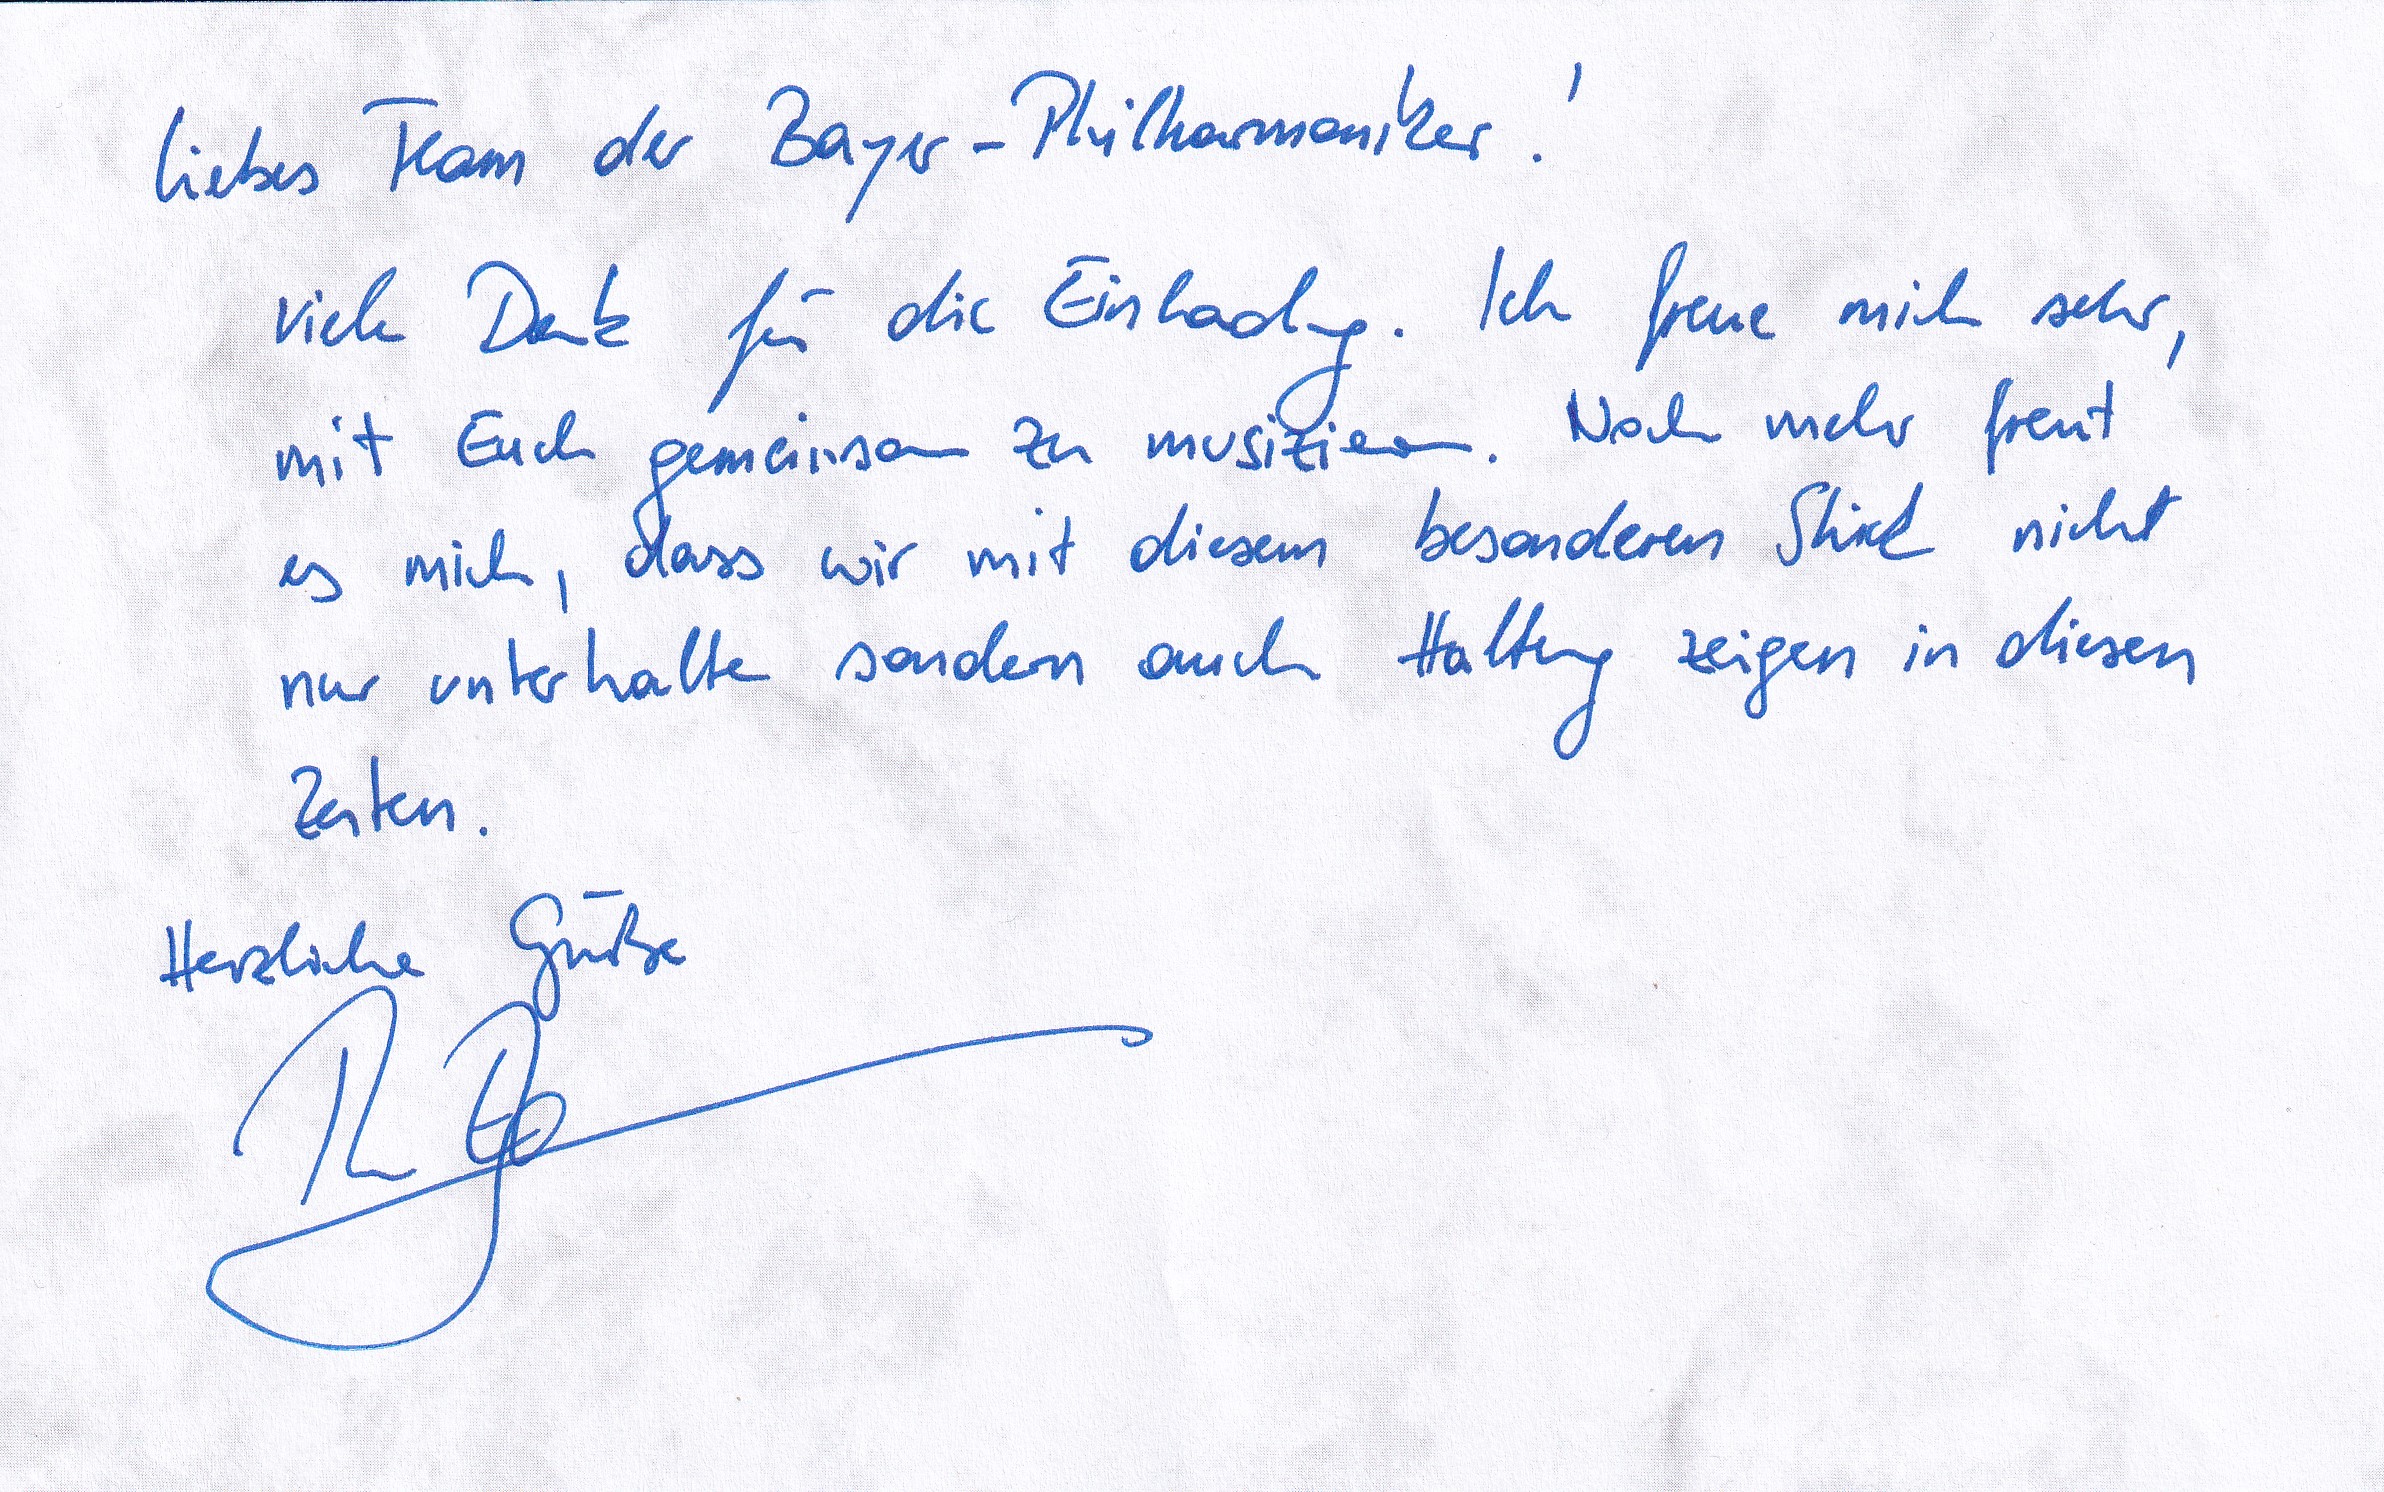 Liebes Team der Bayer-Philharmoniker!
vielen Dank für die Einladung. Ich freue mich sehr,
mit Euch gemeinsam zu musizieren. Noch mehr freut
es mich, dass wir mit diesem besonderen Stück nicht
nur unterhalten sondern auch Haltung zeigen in diesen
Zeiten.
Herzliche Grüße